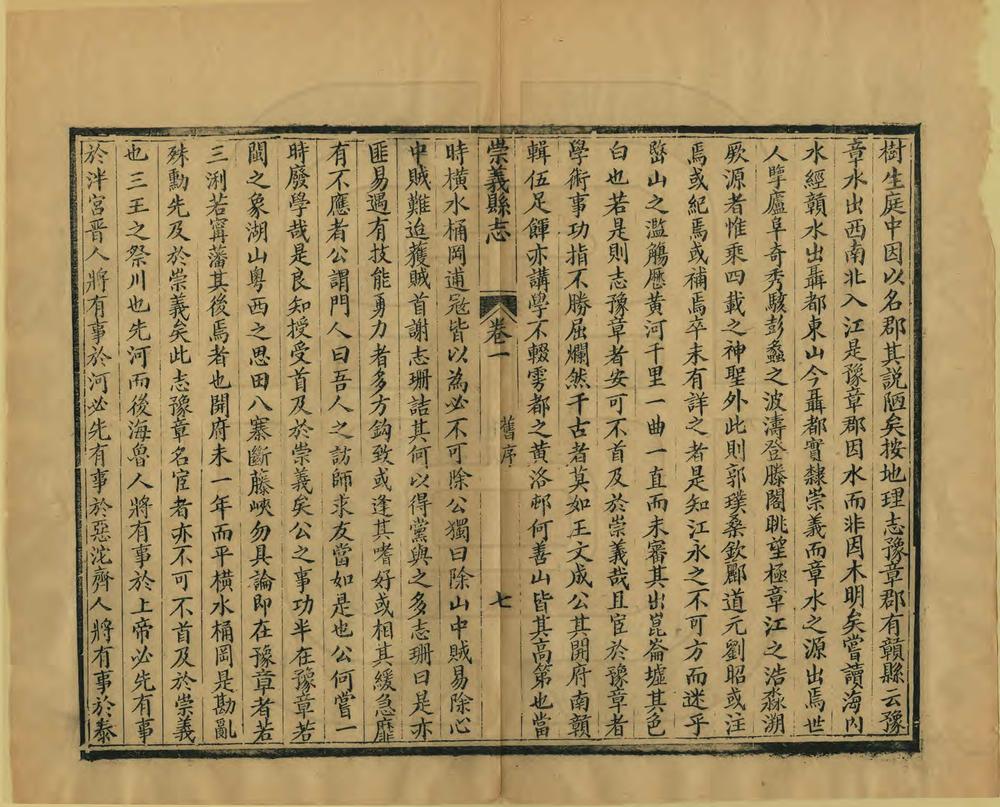 樹生庭中因以名郡其說陋矣按地理志豫章郡有贛縣云豫
章水出西南北入江是豫章郡因水而非因木明矣嘗讀海內
水經贛水出聶都東山今聶都實隸崇義而章水之源出焉世
人擥廬阜奇秀駭彭蠡之波濤登滕閣眺望極章江之浩淼溯
厥源者惟乘四載之神聖外此則郭璞桑欽酈道元劉昭或注
焉或紀焉或補焉卒未有詳之者是知江永之不可方而迷乎
嶅山之濫觴歷黃河千里一曲一直而未審其出崑崙墟其色
白也若是則志豫章者安可不首及於崇義哉且宦於豫章者
學術事功指不勝屈爛然千古者莫如王文成公其開府南贛
輯伍足餫亦講學不輟雩都之黃洛邨何善山皆其高第也當
崇義縣志
卷一
舊序
七
時橫水桶岡逋冦皆以為必不可除公獨曰除山中賊易除心
中賊難迨獲賊首謝志珊詰其何以得黨與之多志珊曰是亦
匪易遇有技能勇力者多方鈎致或逢其嗜好或相其緩急靡
有不應者公謂門人曰吾人之訪師求友當如是也公何嘗一
時廢學哉是良知授受首及於崇義矣公之事功半在豫章若
閩之象湖山粵西之思田八寨斷藤峽勿具論即在豫章者若
三浰若寗藩其後焉者也開府未一年而平橫水桶岡是勘亂
殊勳先及於崇義矣此志豫章名宦者亦不可不首及於崇義
也三王之祭川也先河而後海魯人將有事於上帝必先有事
於泮宮晋人將有事於河必先有事於惡沱齊人將有事於泰